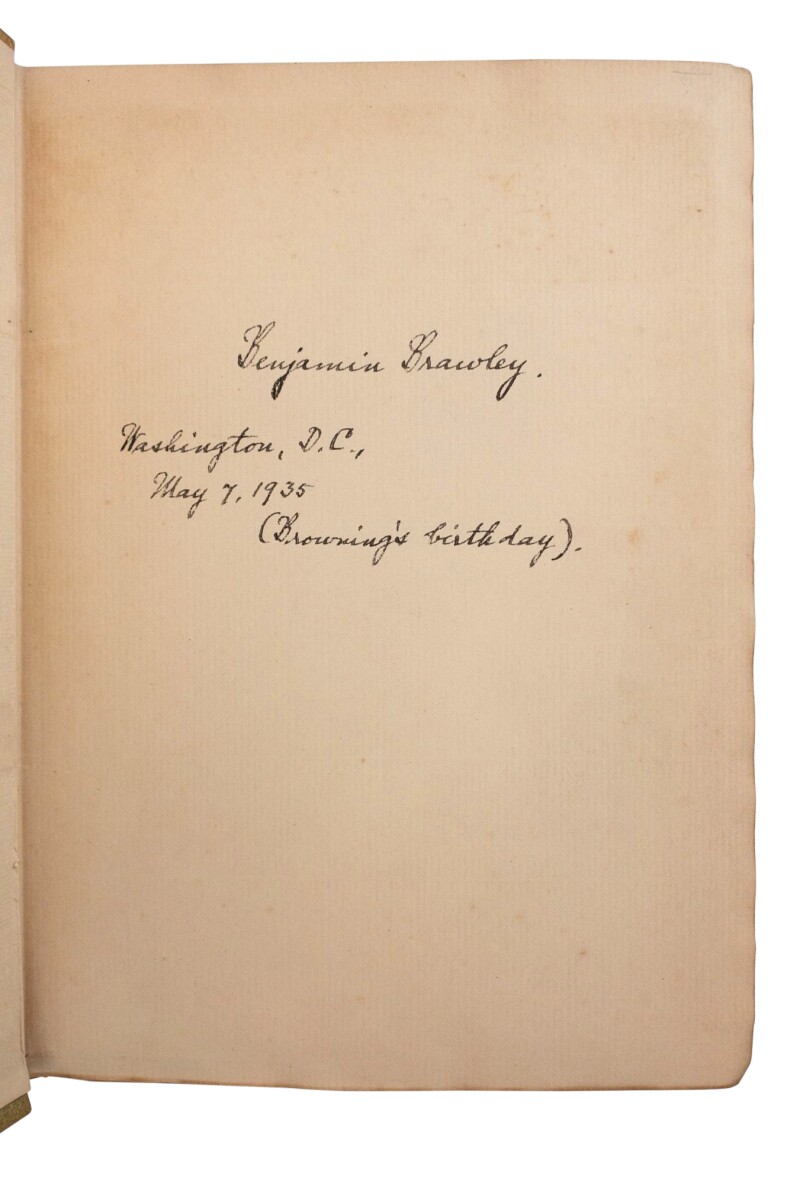 Benjamin Brawley.
Washington, D.C.,
May 7, 1935
(Browning's birthday).